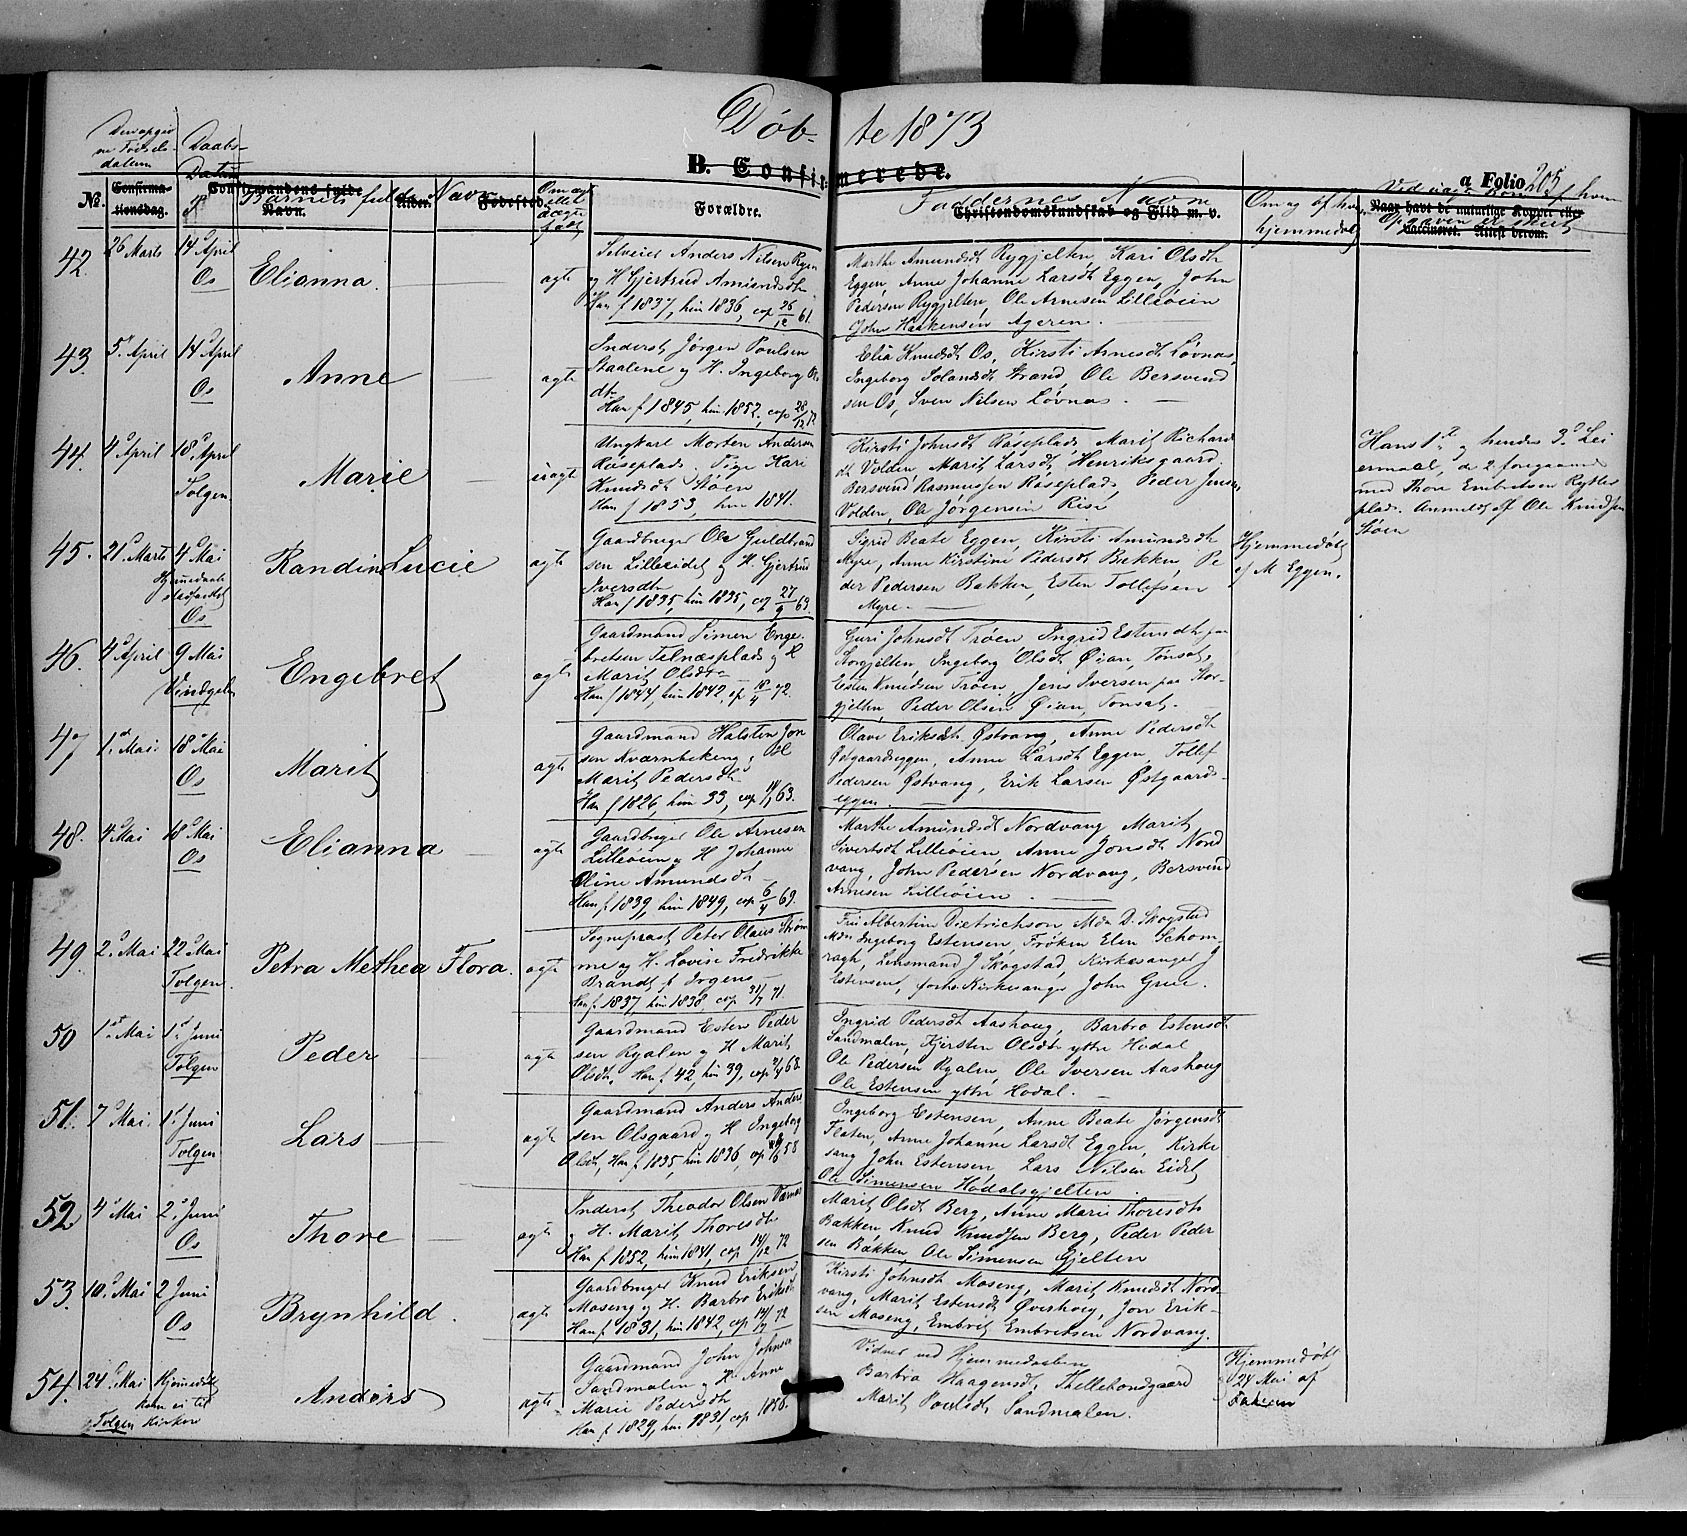 Døb- te 1873
B. Confirmerede.
a Folio 205
Den opgiv
ne Fødsels-
datum
Daabs-
Datum
No.
Confirma-
tionsdag.
Confirmandens fulde
Navn.
Barnets fulde Navn
Alder.
Fødested.
Om ægte
eller
uægte
født
Forældre.
Faddernes Navne
Christendomskundskab og Flid m. v.
Om og af hvem
hjemmedøbt
Naar havt de naturlige Kopper eller
Vaccineret. Attest derom.
42. 26 Marts 14 April
Os
Elianna
ægte
Selveier Anders Nilsen Ryen
og H Gjertrud Amundsdtr
Han f 1837, hun 1836, cop 26/12 61.
Marthe Amundsdt Rygjelten, Kari Olsdtr
Eggen, Anne Johanne Larsdt Eggen, John
Pedersen Rygjelten, Ole Arnesen Lilleøien
John Haakensen Ageren.
43. 5. April 14 April
Os
Anne
ægte
Inderst Jørgen Poulsen
Staalene og H. Ingeborg Ols
dtr
Han f 1845, hun 1852, cop 28/12 72
Elia Knudsdt Os, Kirsti Arnesdt Løvnas,
Ingeborg Solandsdt Strand, Ole Bersvend
sen Os, Sven Nilsen Løvnas.
44. 4 April 18 April
Tolgen
Marie
uægte
Ungkarl Morten Andersen
Røseplads. Pige Kari
Knudsdt Støen
Han f 1853, hun 1841.
Kirsti Johnsdt Røseplads, Marit Richards
dt Volden, Marit Larsdt Henriksgaard
Bersvend Rasmussen Røseplads, Peder Jensen
Volden, Ole Jørgensen Rise
Hans 1ste og hendes 3de Lei
ermaal, de 2 foregaaende
med Thore Embretsen Rytter
plads. Anmeldt af Ole Knudsen
Støen
45. 21 Marts 4 Mai
Hjemmedaab
stadfæstet
Os
Randine Lucie
ægte
Gaardbruger Ole Guldbrand
sen Lilleeidet og H. Gjertrud
Iversdtr
Han f 1835, hun 1835, cop 27/9 63.
Sigrid Beate Eggen, Kirsti Amundsdt
Myre, Anne Kirstine Pedersdt Bakken, Pe
der Pedersen Bakken, Esten Tollefsen
Myre.
Hjemmedøbt
af M Eggen.
46. 4 April 9 Mai
Vindgelen
Engebret
ægte
Gaardmand Simen Enge
bretsen Telnæsplads og H
Marit Olsdtr
Han f 1844, hun 1842, cop 18/4 72.
Guri Johnsdt Trøen, Ingrid Estensdtr paa
Storgjelten, Ingeborg Olsdt Øian, Tønsæt,
Esten Knudsen Trøen, Jens Iversen paa Stor-
gjelten, Peder Olsen Øian, Tønsæt.
47 1. Mai. 18 Mai
Os
Marit
ægte
Gaardmand Halsten Jon
sen Kværnbekeng og H
Marit Pedersdtr
Han f 1826, hun 33, cop 63.
Olave Eriksdt Østvang, Anne Pedersdt
Østgaardseggen, Anne Larsdt Eggen, Tollef
Pedersen Østvang, Erik Larsen Østgaards-
eggen.
48. 4 Mai 18 Mai
Os
Elianna
ægte
Gaardbruger Ole Arnesen
Lilleøien og H Johanne
Oline Amundsdtr
Han f. 1839, hun 1849, cop 6/4 69.
Marthe Amundsdt Nordvang, Marit
Sivertsdt Lilleøien, Anne Jonsdt Nord
vang, John Pedersen Nordvang, Bersvend
Arnesen Lilleøien
49. 2. Mai 22 Mai
Tolgen
Petra Methea Flora.
ægte
Sogneprest Peter Olaus Strøm
me og H. Lovise Fredrikke
Brandt f. Irgens
Han f. 1837, hun 1838, cop 31/7 71.
Fru Albertine Dietrichson, Mdm D. Skogstad
Mdm Ingeborg Estensen, Frøken Elen Schom
ragh, Lensmand J Skogstad, Kirkesanger J
Estensen, forhv Kirkesanger John Grue.
50 1ste Mai 1ste Juni
Tolgen
Peder
ægte
Gaardmand Esten Peder
sen Ryalen og H Marit
Olsdt, Han f. 42, hun 39, cop 68
Ingrid Pedersdt Aashoug, Barbro Estensdt
Sandmalen, Kjersten Olsdt yttre Hodal
Ole Pedersen Ryalen, Ole Iversen Aashoug
Ole Estensen yttre Hodal.
51. 7 Mai. 1 Juni
Tolgen
Lars
ægte
Gaardmand Anders Anders
sen Olsgaard og H Ingeborg
Olsdt, Han f 1835, hun 1836, cop 58
Ingeborg Estensen, Anne Beate Jørgensdt
Flaten, Anne Johanne Larsdt Eggen, Kirke
sang John Estensen, Lars Nilsen Eidet
Ole Simensen Hodalsgjelten
52 4 Mai 2. Juni
Os
Thore
ægte
Inderst Theodor Olsen Værnæs
og H. Marit Thoresdtr
Han f 1852, hun 1841, cop 14/12 72
Marit Olsdt Berg, Anne Marie Thoresdt
Bakken, Knud Knudsen Berg, Peder Peder
sen Bakken, Ole Simensen Gjelten
53. 10. Mai 2 Juni
Os
Brynhild.
ægte
Gaardbruger Knud Eriksen
Moseng og H. Barbro Eriksdt
Han f 1831, hun 1842, cop 72
Kirsti Johnsdt Moseng, Marit Knudsdt Nord-
vang, Marit Estensdt Øverhoug, Jon Erik-
sen Moseng, Embret Embretsen Nordvang.
54. 24 Mai Hjemmedøbt
kom ei til
Tolgen Kirken
Anders
ægte
Gaardmand John Johnsen
Sandmalen og H. Anne
Marie Pedersdtr
Han f 1829, hun 1831, cop 1856.
Vidner ved Hjemmedaaben
Barbro Haagensdt, Thellebondgaard
Marit Poulsdt Sandmalen.
Hjemmedøbt
24 Mai af
Faderen